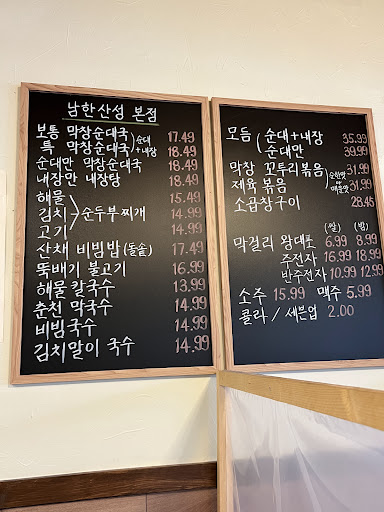 남한산성 본점
보통 막창순대국 17.49
특 막창순대국 18.49
순대+내장
순대만 막창순대국 18.49
내장만 내장탕 18.49
해물 15.49
김치 순두부찌개 14.99
고기 14.99
산채 비빔밥(돌솥) 17.49
뚝배기 불고기 16.99
해물 칼국수 13.99
춘천 막국수 14.99
비빔국수 14.99
김치말이 국수 14.99
모듬 ( 순대+내장 35.99
순대만 39.99
막창 꼬투리볶음 31.99
제육 볶음 31.99
소곱창구이 28.45
(쌀) (밤)
막걸리 왕대포 6.99 8.99
주전자 16.99 18.99
반주전자 10.99 12.99
소주 15.99 맥주 5.99
콜라 / 세븐업 2.00